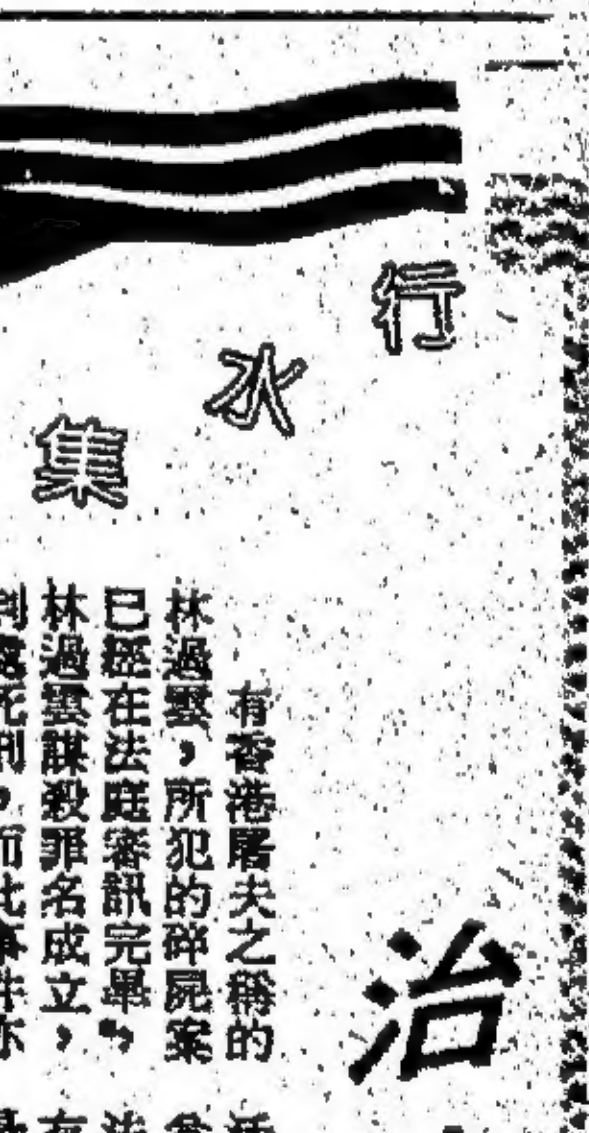 行水集
治
有香港屠夫之稱的
林過雲，所犯的碎屍案
已經在法庭審訊完畢，
林過雲謀殺罪名成立，
判處死刑，而此事件亦